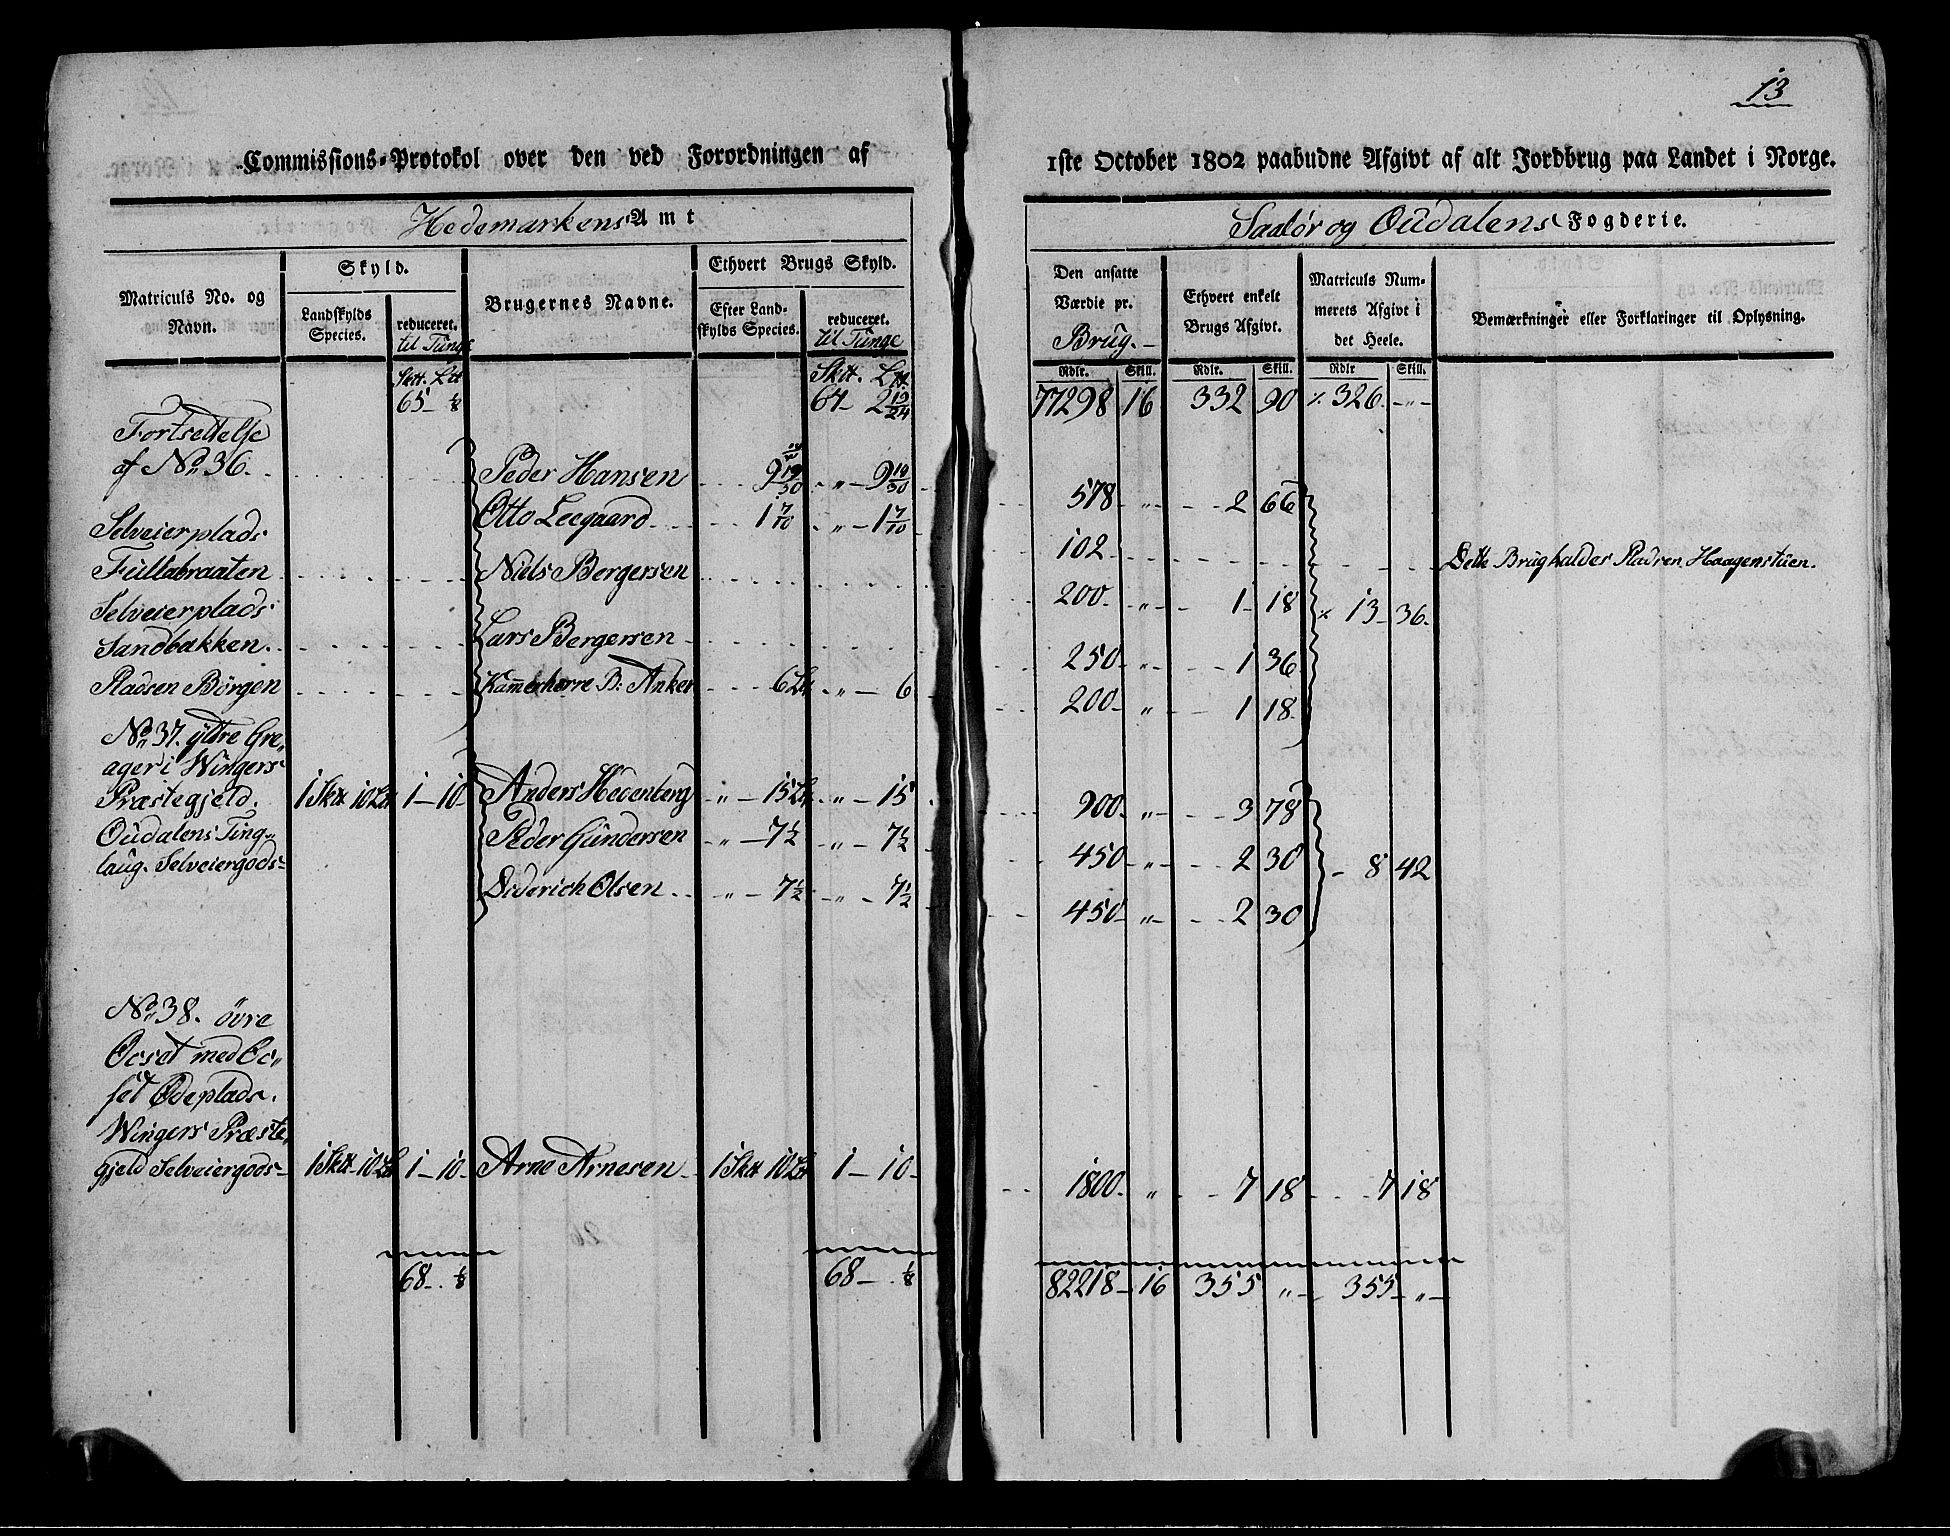 13
Commissions-Protokol over den ved Forordningen af 1ste October 1802 paabudne Afgivt af alt Jordbrug paa Landet i Norge.
Hedemarkens Amt
Soalør og Oudalens Fogderie.
Matriculs No. og Navn.
Skyld.
Landskylds Species.
reduceret. til Tunge
Brugernes Navne.
Ethvert Brugs Skyld.
Efter Landskylds Species.
reduceret. til Tunge
Den ansatte Værdie pr. Brug.
Ethvert enkelt Brugs Afgivt.
Matriculs Nummerets Afgivt i det Heele.
Bemærkninger eller Forklaringer til Oplysning.
Rdlr. Skill. Rdlr. Skill. Rdlr Skill.
Sktt. Ltt Sktt. Ltt.
65 - 1/8 67 - 2 19/24 77298 16 332 90 326 - " -
Fortsettelse
af No. 36. Peder Hansen 9 19/30 " - 9 19/30 578 " 2 66
Otto Leegaard 1 7/10 " - 1 7/10 102 Dette Brug haldes Pladsen Haagenstuen.
Selveierplads
Fullabraaten Niels Bergersen 200 " 1 18 13 36
Selveierplads
Sandbakken. Lars Bergersen 250 " 1 36
Pladsen Börgen Kammerherre B: Anker 6 Ltt " - 6 200 " 1 18
No. 37. ytre Gre-
ager i Wingers
Præstegjeld. 1 Sktt 10 Ltt 1 - 10 Anders Hedenberg " - 15 Ltt " - 15 900 " 3 78
Oudalens Ting-
laug. Selveiergods Peder Gundersen " - 7 1/2 " - 7 1/2 450 " 2 30 8 42
Diderich Olsen " - 7 1/2 " - 7 1/2 450 " 2 30
No. 38. övre
Ocset med Oc-
set Ödeplads.
Wingers Præste-
gjeld Selveiergods 1 Sktt 10 Ltt 1 - 10 Arne Arnesen 1 Sktt 10 Ltt 1 - 10 1800 " 7 18 7 18
68 - 1/8 68 - 1/8 82218 16 355 " 355 "